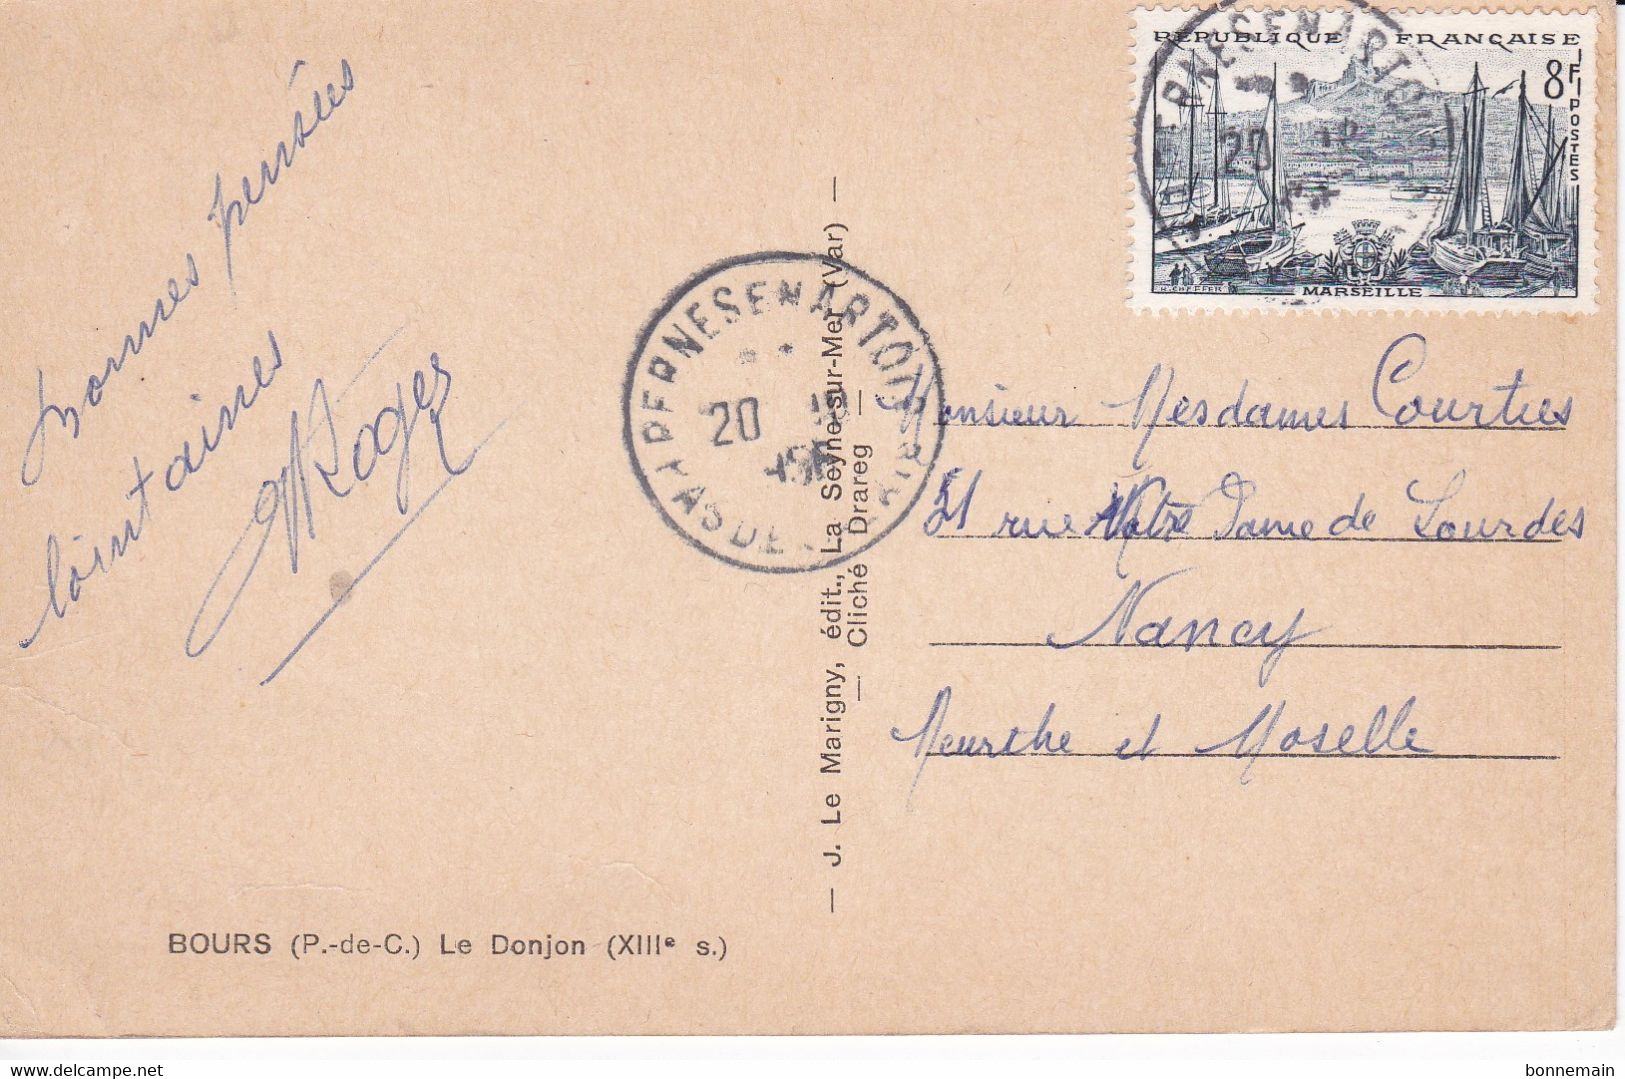 bonnes pensées
lointaines
Roger
BOURS (P.-de-C.) Le Donjon (XIIIe s.)
— J. Le Marigny, édit., La Seyne-sur-Mer (Var) —
— Cliché Drareg —
PERNES EN ARTOIS
20
PAS DE
REPUBLIQUE FRANÇAISE
8F
POSTES
MARSEILLE
R. CHEFFER
PERNES EN ARTOIS
20
Monsieur Mesdames Courties
21 rue Notre Dame de Lourdes
Nancy
Meurthe et Moselle
delcampe.net
bonnemain